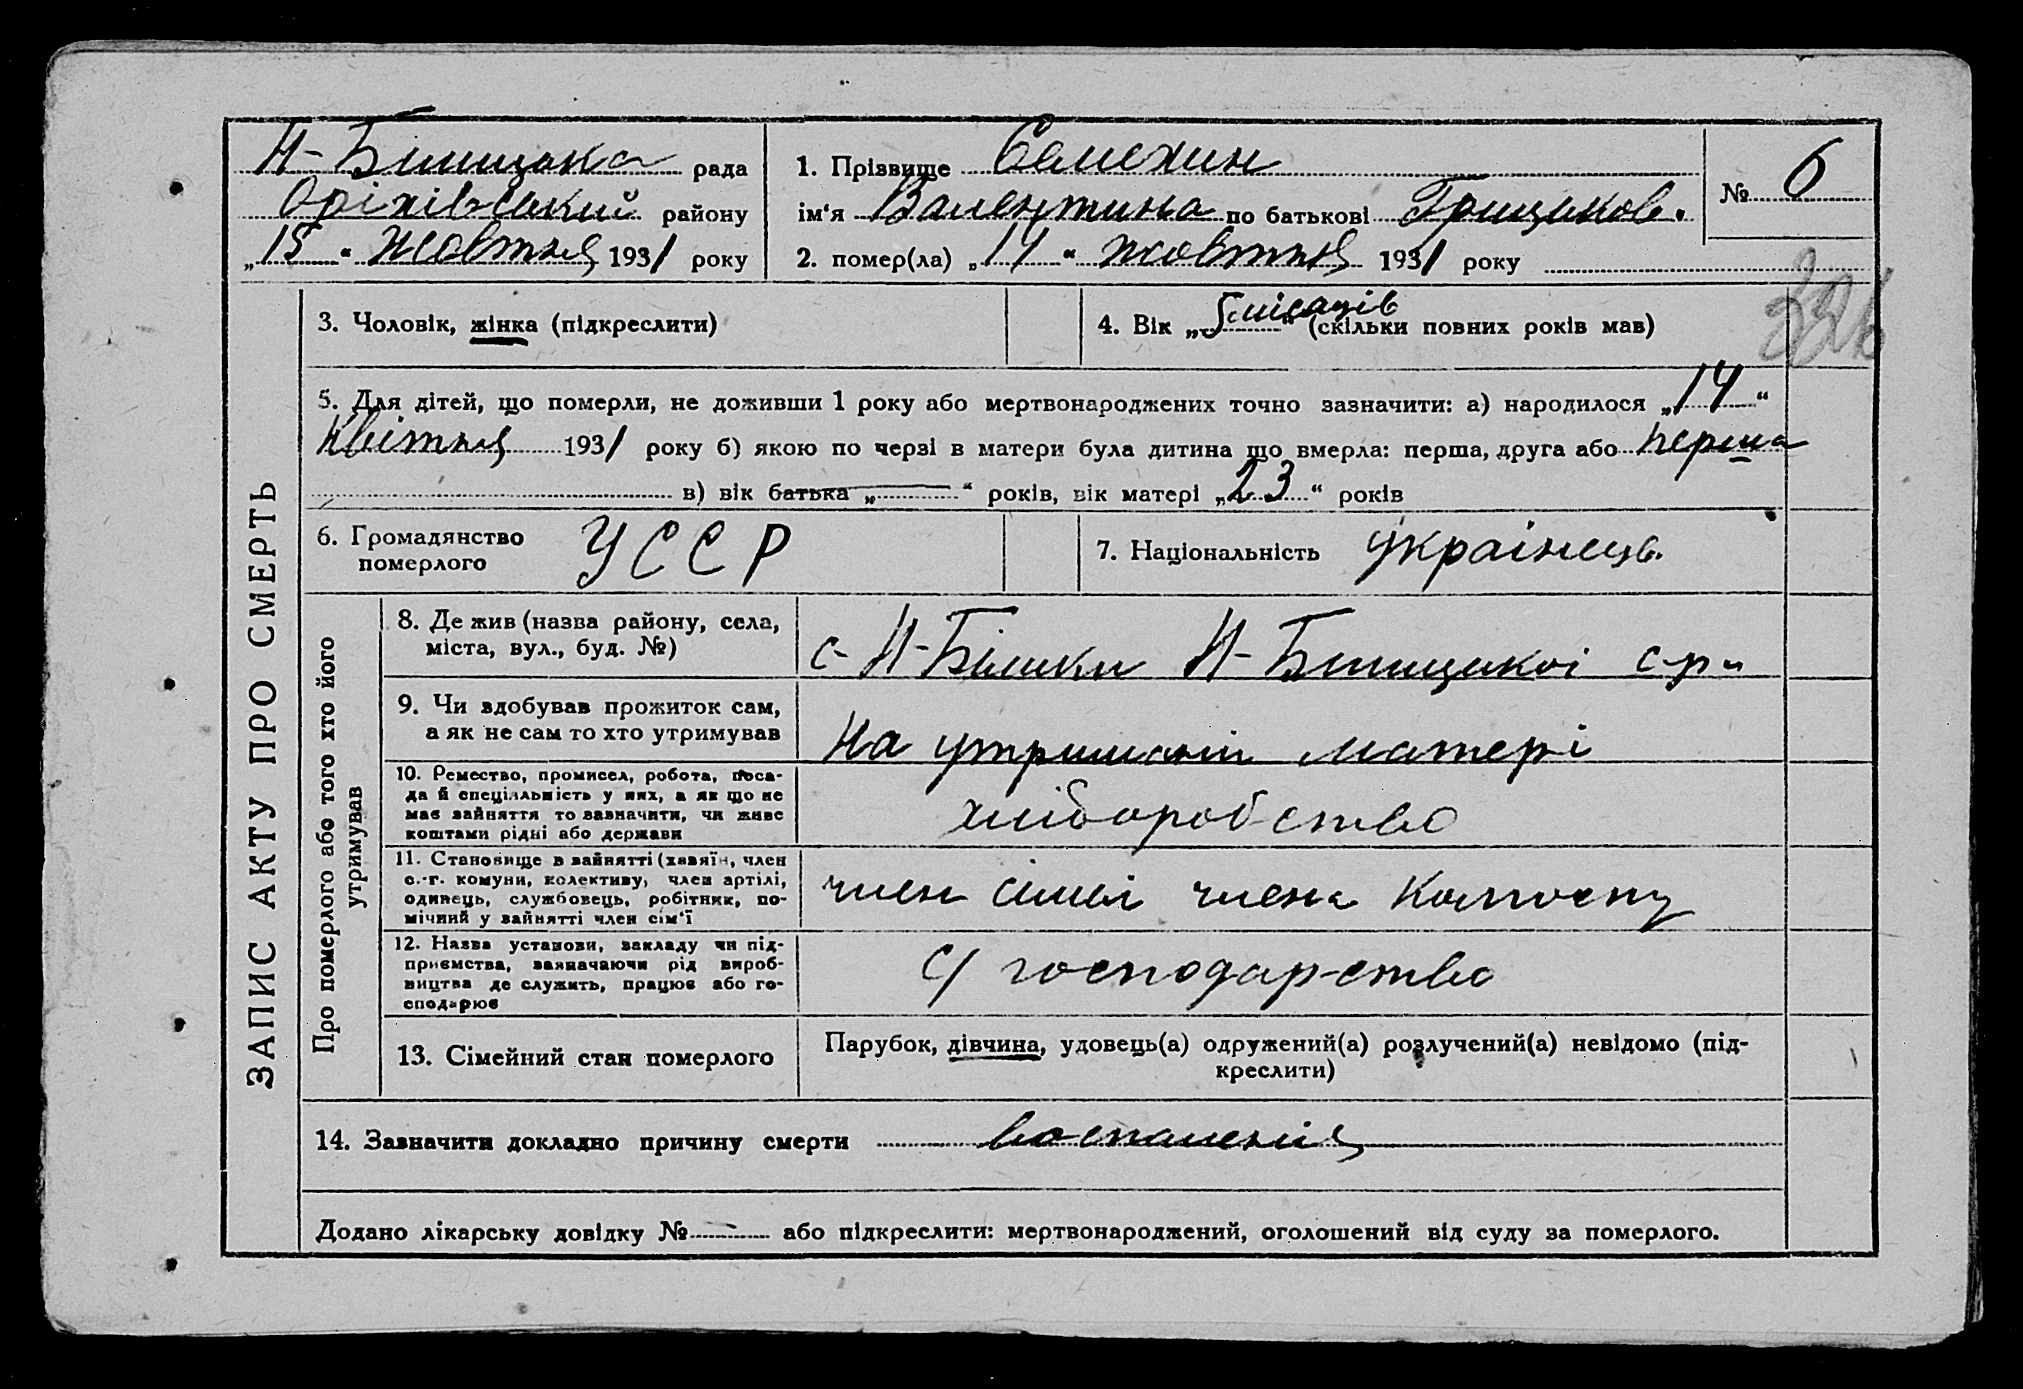 Н-Білицька рада
Оріхівський району
„15“ жовтня 1931 року
1. Прізвище Семехин
ім'я Валентина по батькові Грицьков.
2. помер(ла) „14“ жовтня 1931 року
№ 6
3. Чоловік, жінка (підкреслити)
4. Вік „5 місяців“ (скільки повних років мав)
5. Для дітей, що померли, не доживши 1 року або мертвонароджених точно зазначити: а) народилося „14“
квітня 1931 року б) якою по черзі в матери була дитина що вмерла: перша, друга або перша
в) вік батька „ “ років, вік матері „23“ років
6. Громадянство
померлого
УССР
7. Національність Українець.
ЗАПИС АКТУ ПРО СМЕРТЬ
Про померлого або того хто його
утримував
8. Де жив (назва району, села,
міста, вул., буд. №)
с-Н-Білики Н-Білицької с-р
9. Чи здобував прожиток сам,
а як не сам то хто утримував
На утриманні матері
10. Ремество, промисел, робота, поса-
да й спеціяльність у них, а як що не
має зайняття то зазначити, чи живе
коштами рідні або держави
хліборобство
11. Становище в зайнятті (хазяїн, член
с.-г. комуни, колективу, член артілі,
одинець, службовець, робітник, по-
мічний у зайнятті член сім'ї
член сімї члена колгоспу
12. Назва установи, закладу чи під-
приємства, зазначаючи рід вироб-
ництва де служить, працює або го-
сподарює
С/господарство
13. Сімейний стан померлого
Парубок, дівчина, удовець(а) одружений(а) розлучений(а) невідомо (під-
креслити)
14. Зазначити докладно причину смерти воспаленія
Додано лікарську довідку № — або підкреслити: мертвонароджений, оголошений від суду за померлого.